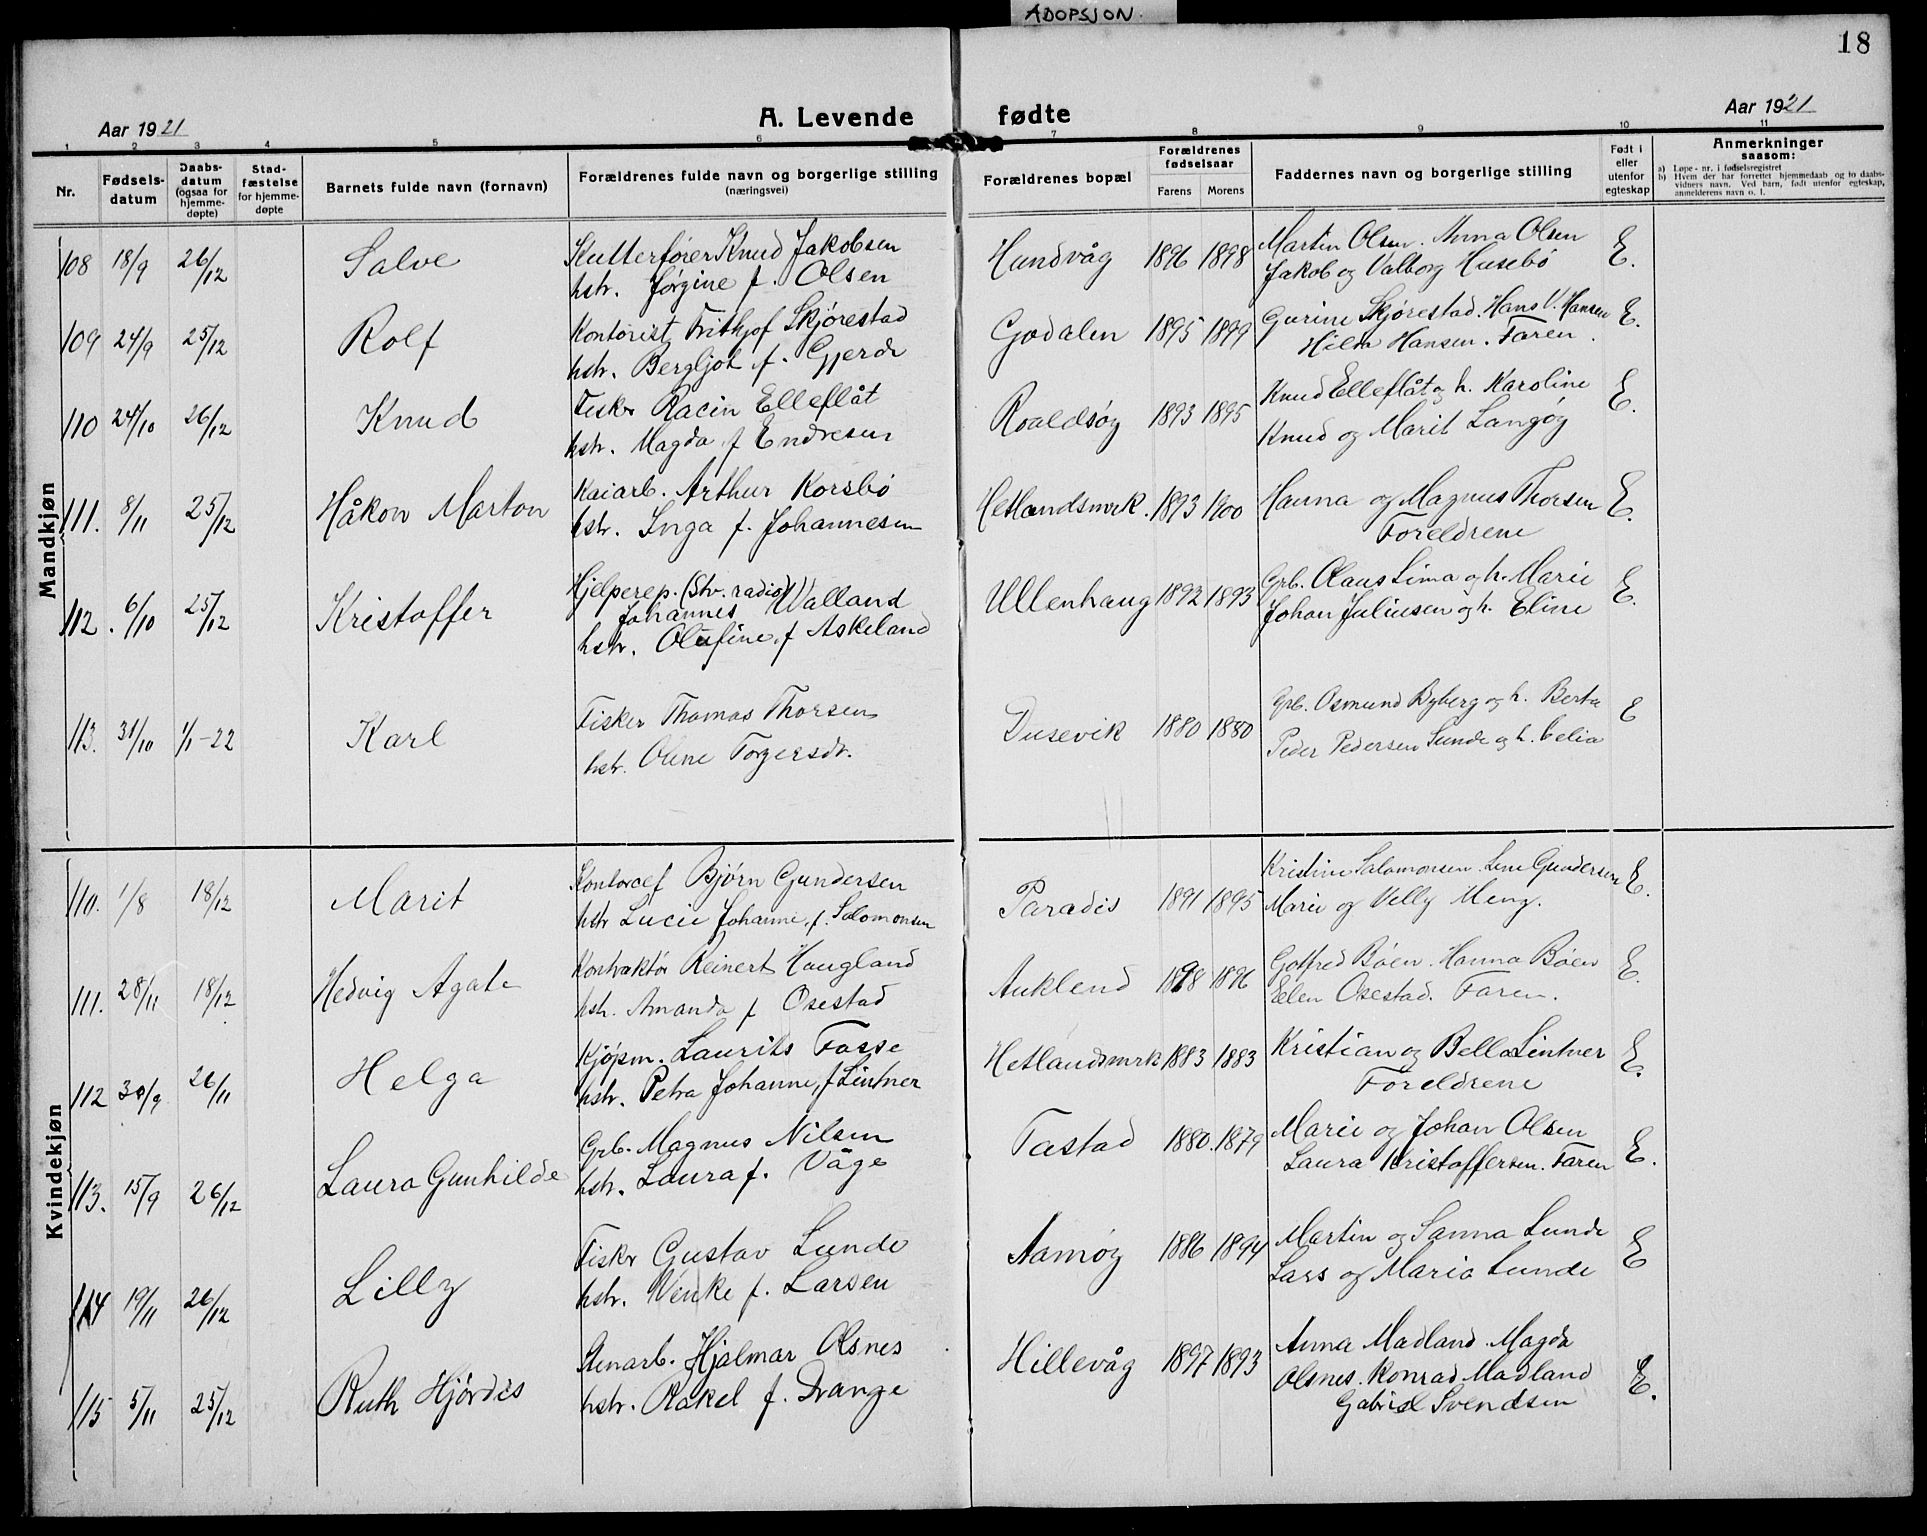 ADOPSJON.
18
Aar 1921
A. Levende fødte
Aar 1921
1 2 3 4 5 6 7 8 9 10 11
Nr.
Fødsels-
datum
Daabs-
datum
(ogsaa for
hjemme-
døpte)
Stad-
fæstelse
for hjemme-
døpte
Barnets fulde navn (fornavn)
Forældrenes fulde navn og borgerlige stilling
(næringsvei)
Forældrenes bopæl
Forældrenes
fødselsaar
Farens Morens
Faddernes navn og borgerlige stilling
Født i
eller
utenfor
egteskap
Anmerkninger
saasom:
a) Løpe-nr. i fødselsregistret
b) Hvem der har forrettet hjemmedaab og to daabs-
vidners navn. Ved barn, født utenfor egteskap,
anmelderens navn o. l.
Mandkjøn
108 18/9 26/12 Salve
Kutterfører Knud Jakobsen
hstr. Jørgine f. Olsen
Hundvåg 1896 1898
Martin Olsen. Anna Olsen
Jakob og Valborg Husebö
E.
109 24/9 25/12 Rolf
Kontorist Frithjof Skjørestad
hstr. Bergljot f. Gjerde
Godalen 1895 1899
Gurine Skjørestad. Hans V. Hansen
Hilda Hansen. Faren.
E.
110 24/10 26/12 Knud
Fisker Racin Elleflåt
hstr. Magda f Endresen
Roaldsøy 1893 1895
Knud Elleflåt og h. Karoline
Knud og Marit Langøy
E.
111. 8/11 25/12 Håkon Marton
Kaiarb. Arthur Korsbö
hstr. Inga f. Johannesen
Hetlandsmrk. 1893 1900
Hanna og Magnus Thorsen
Foreldrene
E.
112. 6/10 25/12 Kristoffer
Hjelperep. (Stv. radio)
Johannes Walland
hstr. Olufine f Askeland
Ullenhaug 1892 1893
Grb. Olaus Lima og h. Marie
Johan Juliusen og h. Eline
E.
113. 31/10 1/1-22 Karl
Fisker Thomas Thorsen
hstr. Oline Torgersdr.
Dusevik 1880 1880
Grb. Osmund Byberg og h. Berta
Peder Pedersen Sunde og h. Celia
E
Kvindekjøn
110. 1/8 18/12 Marit
Kontorcef Bjørn Gundersen
hstr Lucie Johanne, f. Salomonsen
Paradis 1891 1895
Kristine Salomonsen. Lene Gundersen
Marie og Velly Meng.
E.
111. 28/11 18/12 Hedvig Agate
Kontraktör Reinert Haugland
hstr. Amanda f Osestad
Auklend 1898 1896
Gotfred Böen. Hanna Böen
Elen Osestad. Faren.
E.
112 30/9 26/11 Helga
Kjöpm. Laurits Fasse
hstr. Petra Johanne, f Lintner
Hetlandsmrk 1883 1883
Kristian og Bella Lintner
Foreldrene
E.
113. 15/9 26/12 Laura Gunhilde
Grb. Magnus Nilsen
hstr. Laura f. Våge
Tastad 1880. 1879
Marie og Johan Olsen
Laura Kristoffersen. Faren
E.
114 19/11 26/12 Lilly
Fisker Gustav Lunde
hstr. Venke f. Larsen
Aamøy 1886 1894
Martin og Sanna Lunde
Lars og Maria Lunde
E
115 5/11 25/12 Ruth Hjördis
Stenarb. Hjalmar Olsnes
hstr. Rakel f. Drange
Hillevåg 1897 1893
Anna Madland. Magda
Olsnes. Konrad Madland
Gabriel Svendsen
E.